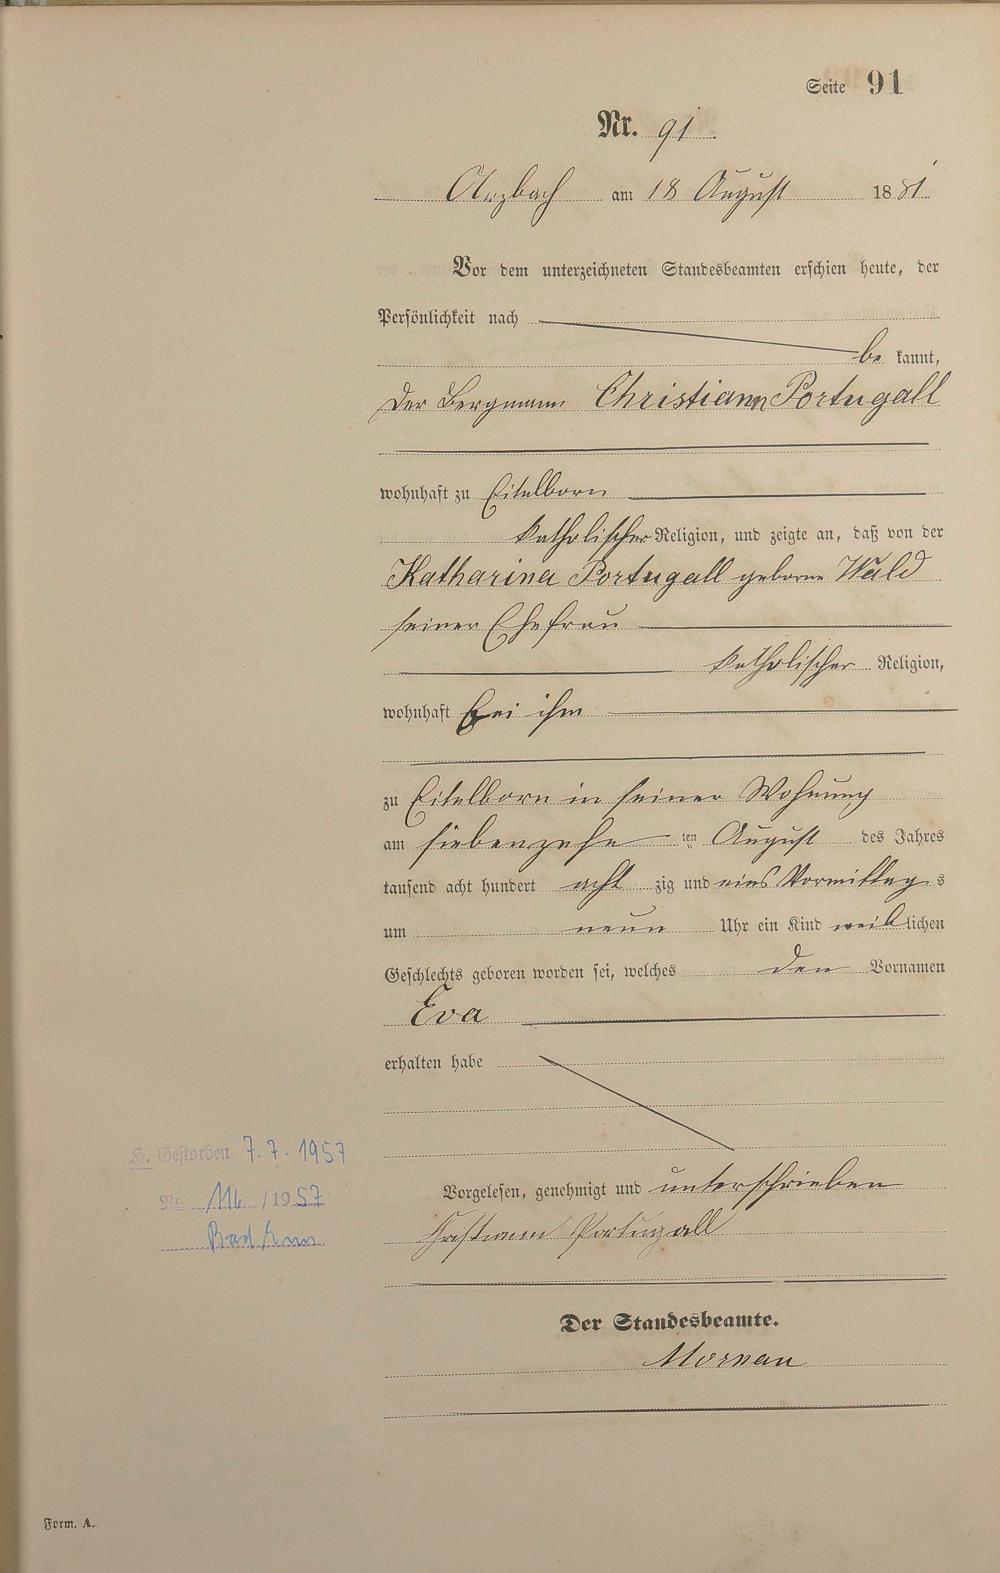 Seite 91
Nr. 91.
Arzbach am 18 August 1881
Vor dem unterzeichneten Standesbeamten erschien heute, der
Persönlichkeit nach
be kannt,
der Bergmann Christiann Portugall
wohnhaft zu Eitelborn
katholischer Religion, und zeigte an, daß von der
Katharina Portugall geborne Wald
seiner Ehefrau
katholischer Religion,
wohnhaft bei ihm
zu Eitelborn in seiner Wohnung
am siebenzehn ten August des Jahres
tausend acht hundert acht zig und eins Vormittag s
um neun Uhr ein Kind weiblichen
Geschlechts geboren worden sei, welches den Vornamen
Eva
erhalten habe
H. Gestorben 7.7.1957
Vorgelesen, genehmigt und unterschrieben
Nr. 116 /1957
Christiann Portugall
Bad Ems
Der Standesbeamte.
Form. A.